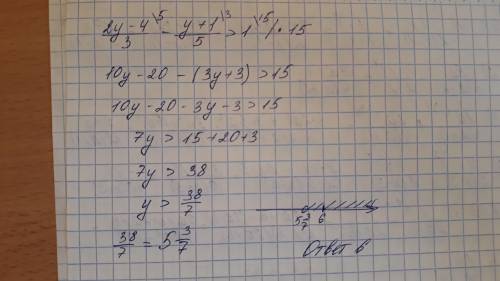 (2y-4)/3 \5 - (y+1)/5 \3 > 1 \15 | · 15
10y - 20 - (3y+3) > 15
10y - 20 - 3y - 3 > 15
7y > 15 + 20 + 3
7y > 38
y > 38/7
5 3/7 6
38/7 = 5 3/7
Ответ 6